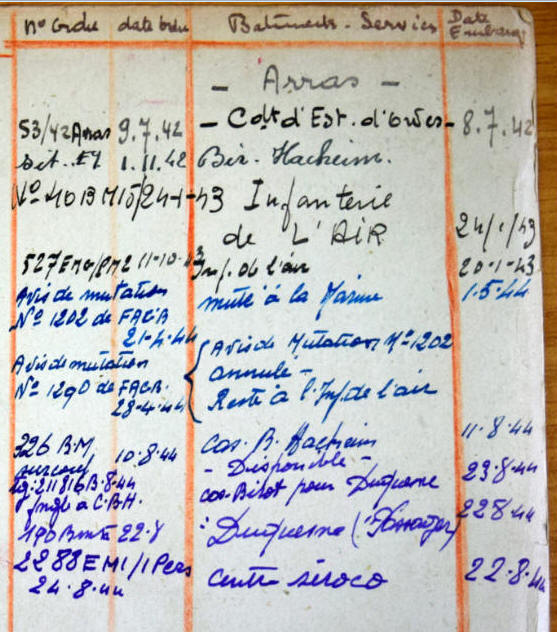 n° Ordre date Ordre Batiments - Services Date Embarq.
- Arras -
53/42 Arras 9.7.42 - Cdt d'Est. d'Ordres - 8.7.42
1.11.42 Bir. Hacheim.
N° 40 BM15/24-1-43 Infanterie
de L'AIR 24/1/43
527 EMG/PM2 11-10-43 Inf. de l'air 20-1-43
Avis de mutation muté à la Marine 1.5.44
N° 1202 de FAGR
21-4-44
Avis de mutation N° 1202
Avis de mutation annulé -
N° 1290 de FAGR. Reste à l'Inf. de l'air
28-4-44
326 B.M 10.8.44 Cas. B. Hacheim 11.8.44
surcouf - Disponible -
Tg. 211816 B.8.44 cas. Birot pour Duquesne 23.8.44
Ingl à C.B.H.
190 Bmte 22.8 Duquesne (Passager) 22 8 44
2288 EM1/1 Pers Centre Siroco 22.8.44
24.8.44